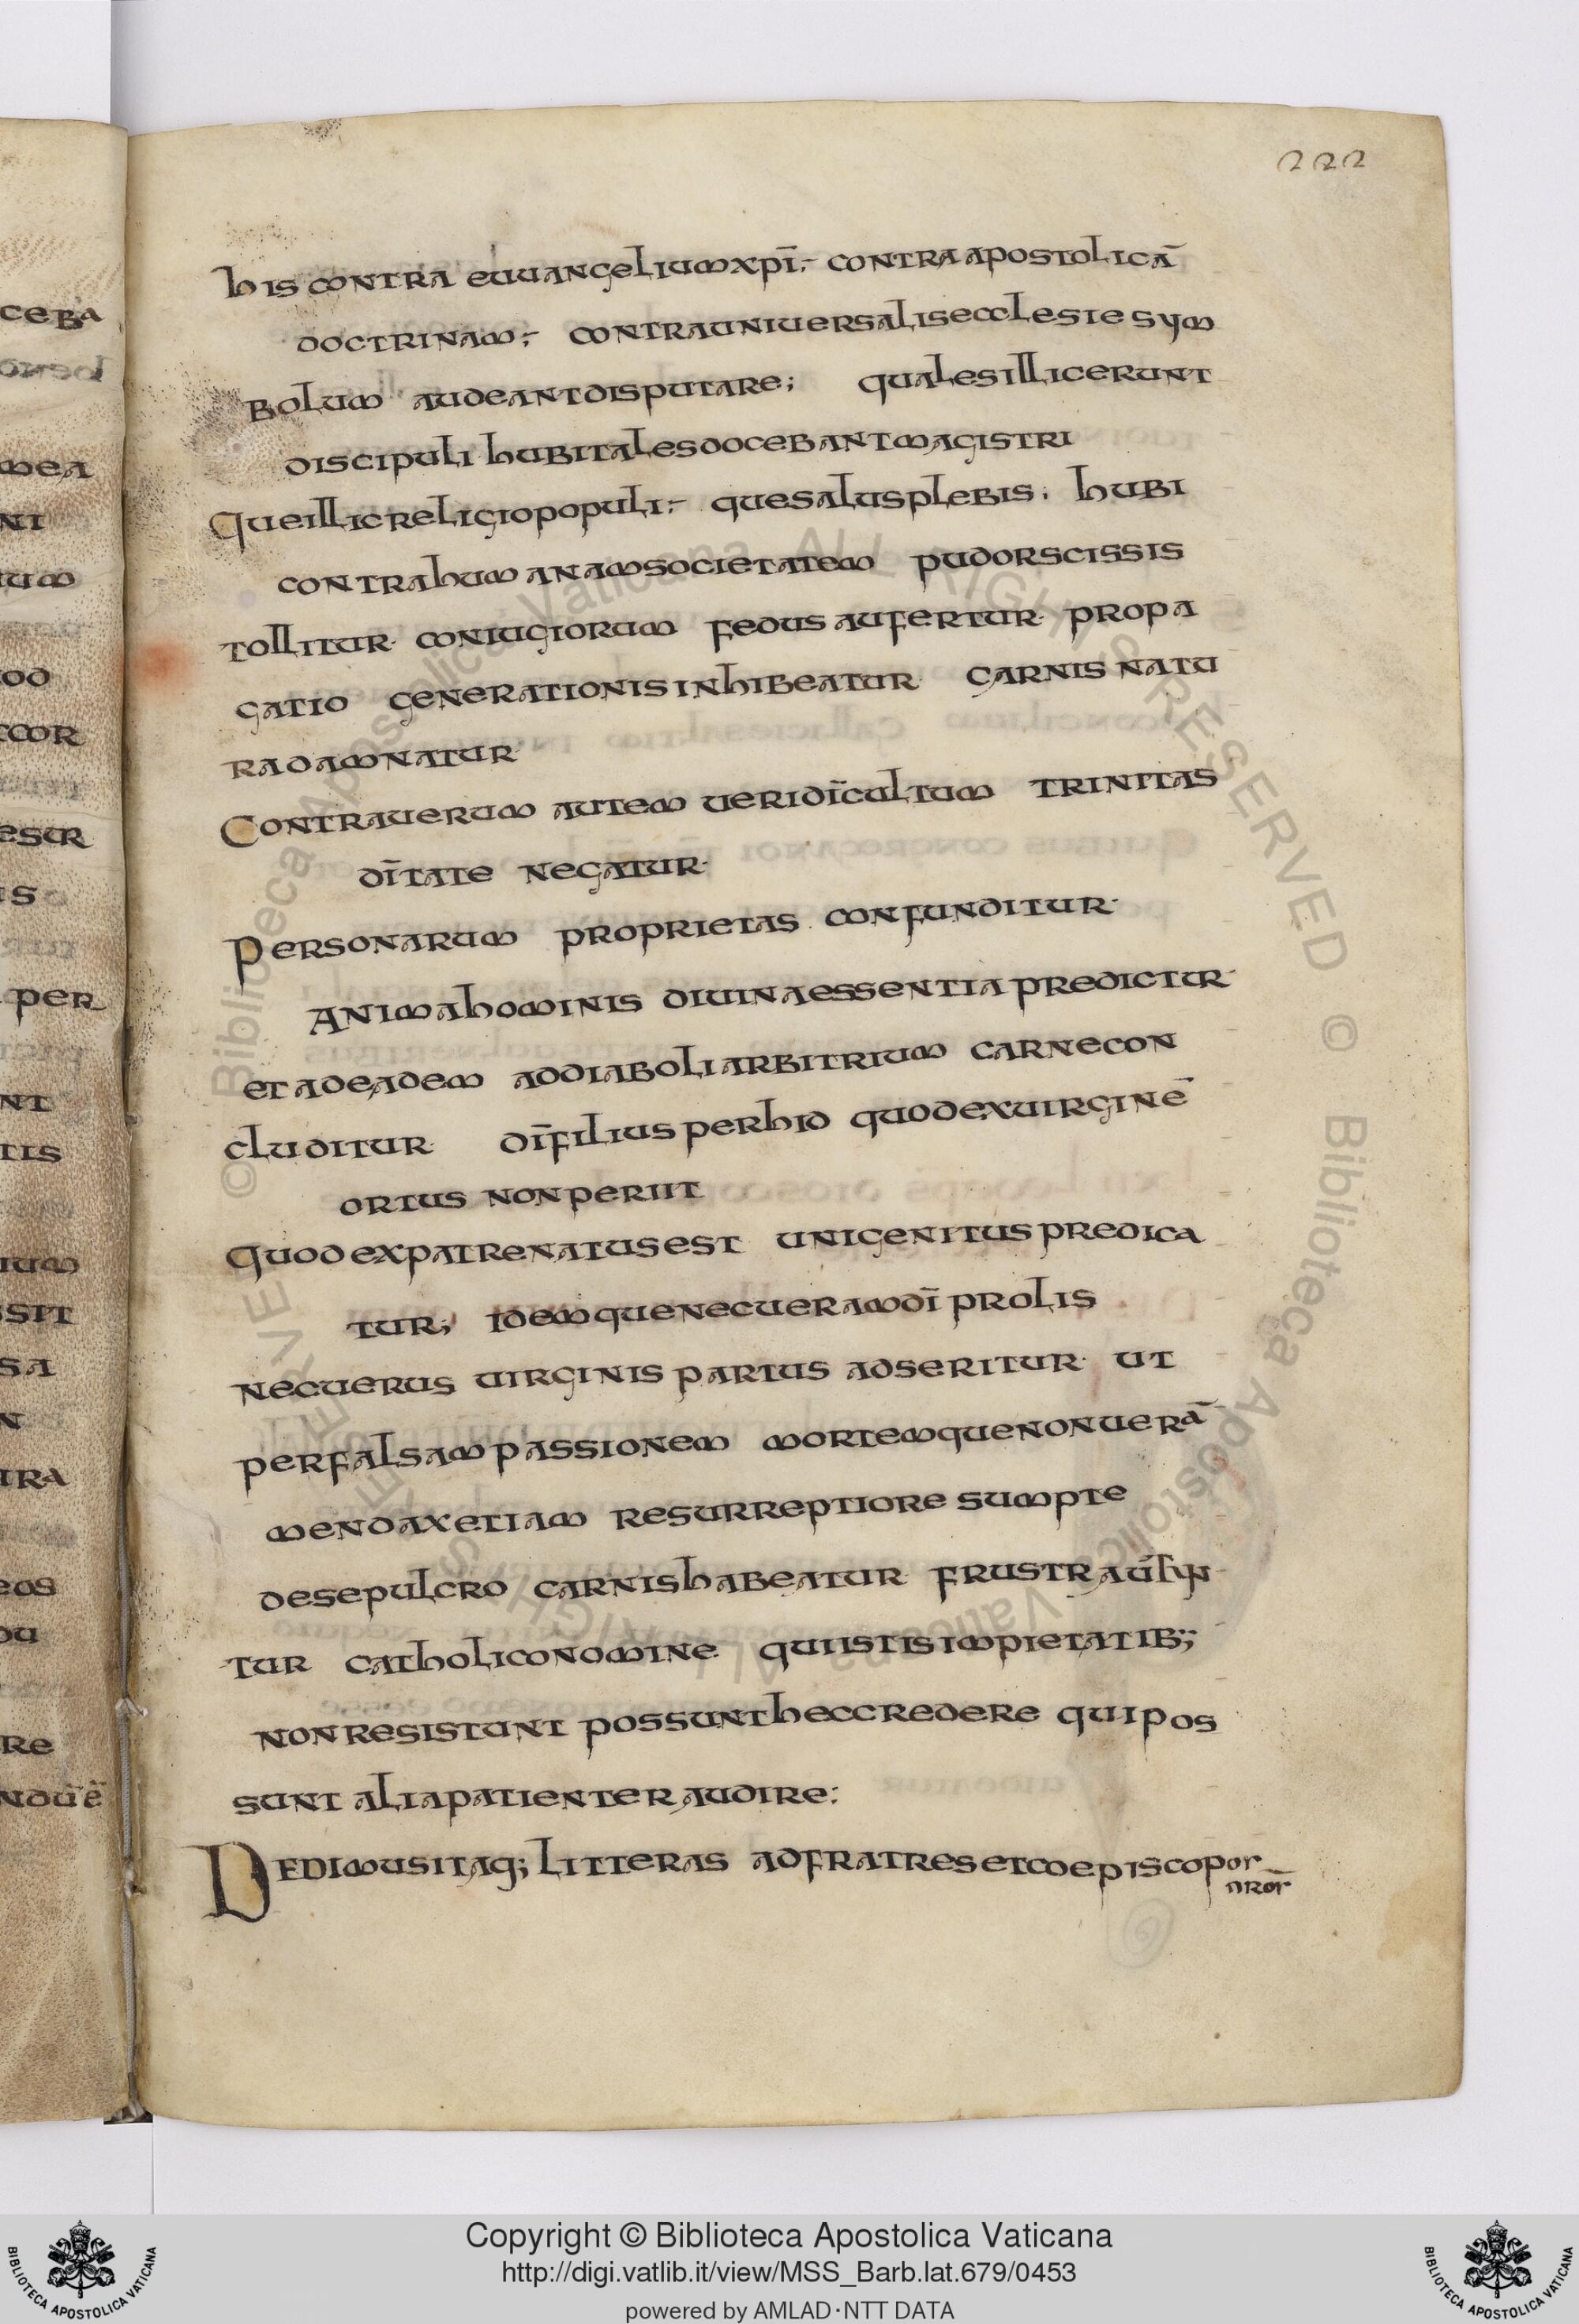 222
his contra euuangelium xpī; contra apostolicā
doctrinam; contra uniuersalis ecclesie sym
bolum audeant disputare; quales illic erunt
discipuli hubi tales docebant magistri
Que illic religio populi; que salus plebis. hubi
contra humanam societatem pudor scissis
tollitur· coniugiorum fedus aufertur· propa
gatio generationis inhibeatur carnis natu
ra damnatur·
Contra uerum autem ueri dī cultum trinitas
dītate negatur·
Personarum proprietas confunditur·
Anima hominis diuina essentia predictur·
et adeadem ad diaboli arbitrium carne con
cluditur· dī filius per hid quod ex uirginē
ortus non periit
Quod ex patre natus est unigenitus predica
tur; Idemque nec uera mdī prolis
nec uerus uirginis partus adseritur· ut
per falsam passionem mortemque non uerā
mendax etiam resurreptiore sumpte
de sepulcro carnis habeatur· frustra
tur catholico nomine qui istis impietatib;
non resistunt possunt hec credere qui pos
sunt alia patienter audire:
Dedimus itaq; litteras ad fratres et coepiscopor
nror
ceba
mea
ni
um
od
cor
estr
is
per
nt
tis
ium
ssit
sa
n
tra
eos
ou
re
Copyright © Biblioteca Apostolica Vaticana
http://digi.vatlib.it/view/MSS_Barb.lat.679/0453
powered by AMLAD·NTT DATA
BIBLIOTECA APOSTOLICA VATICANA
BIBLIOTECA APOSTOLICA VATICANA